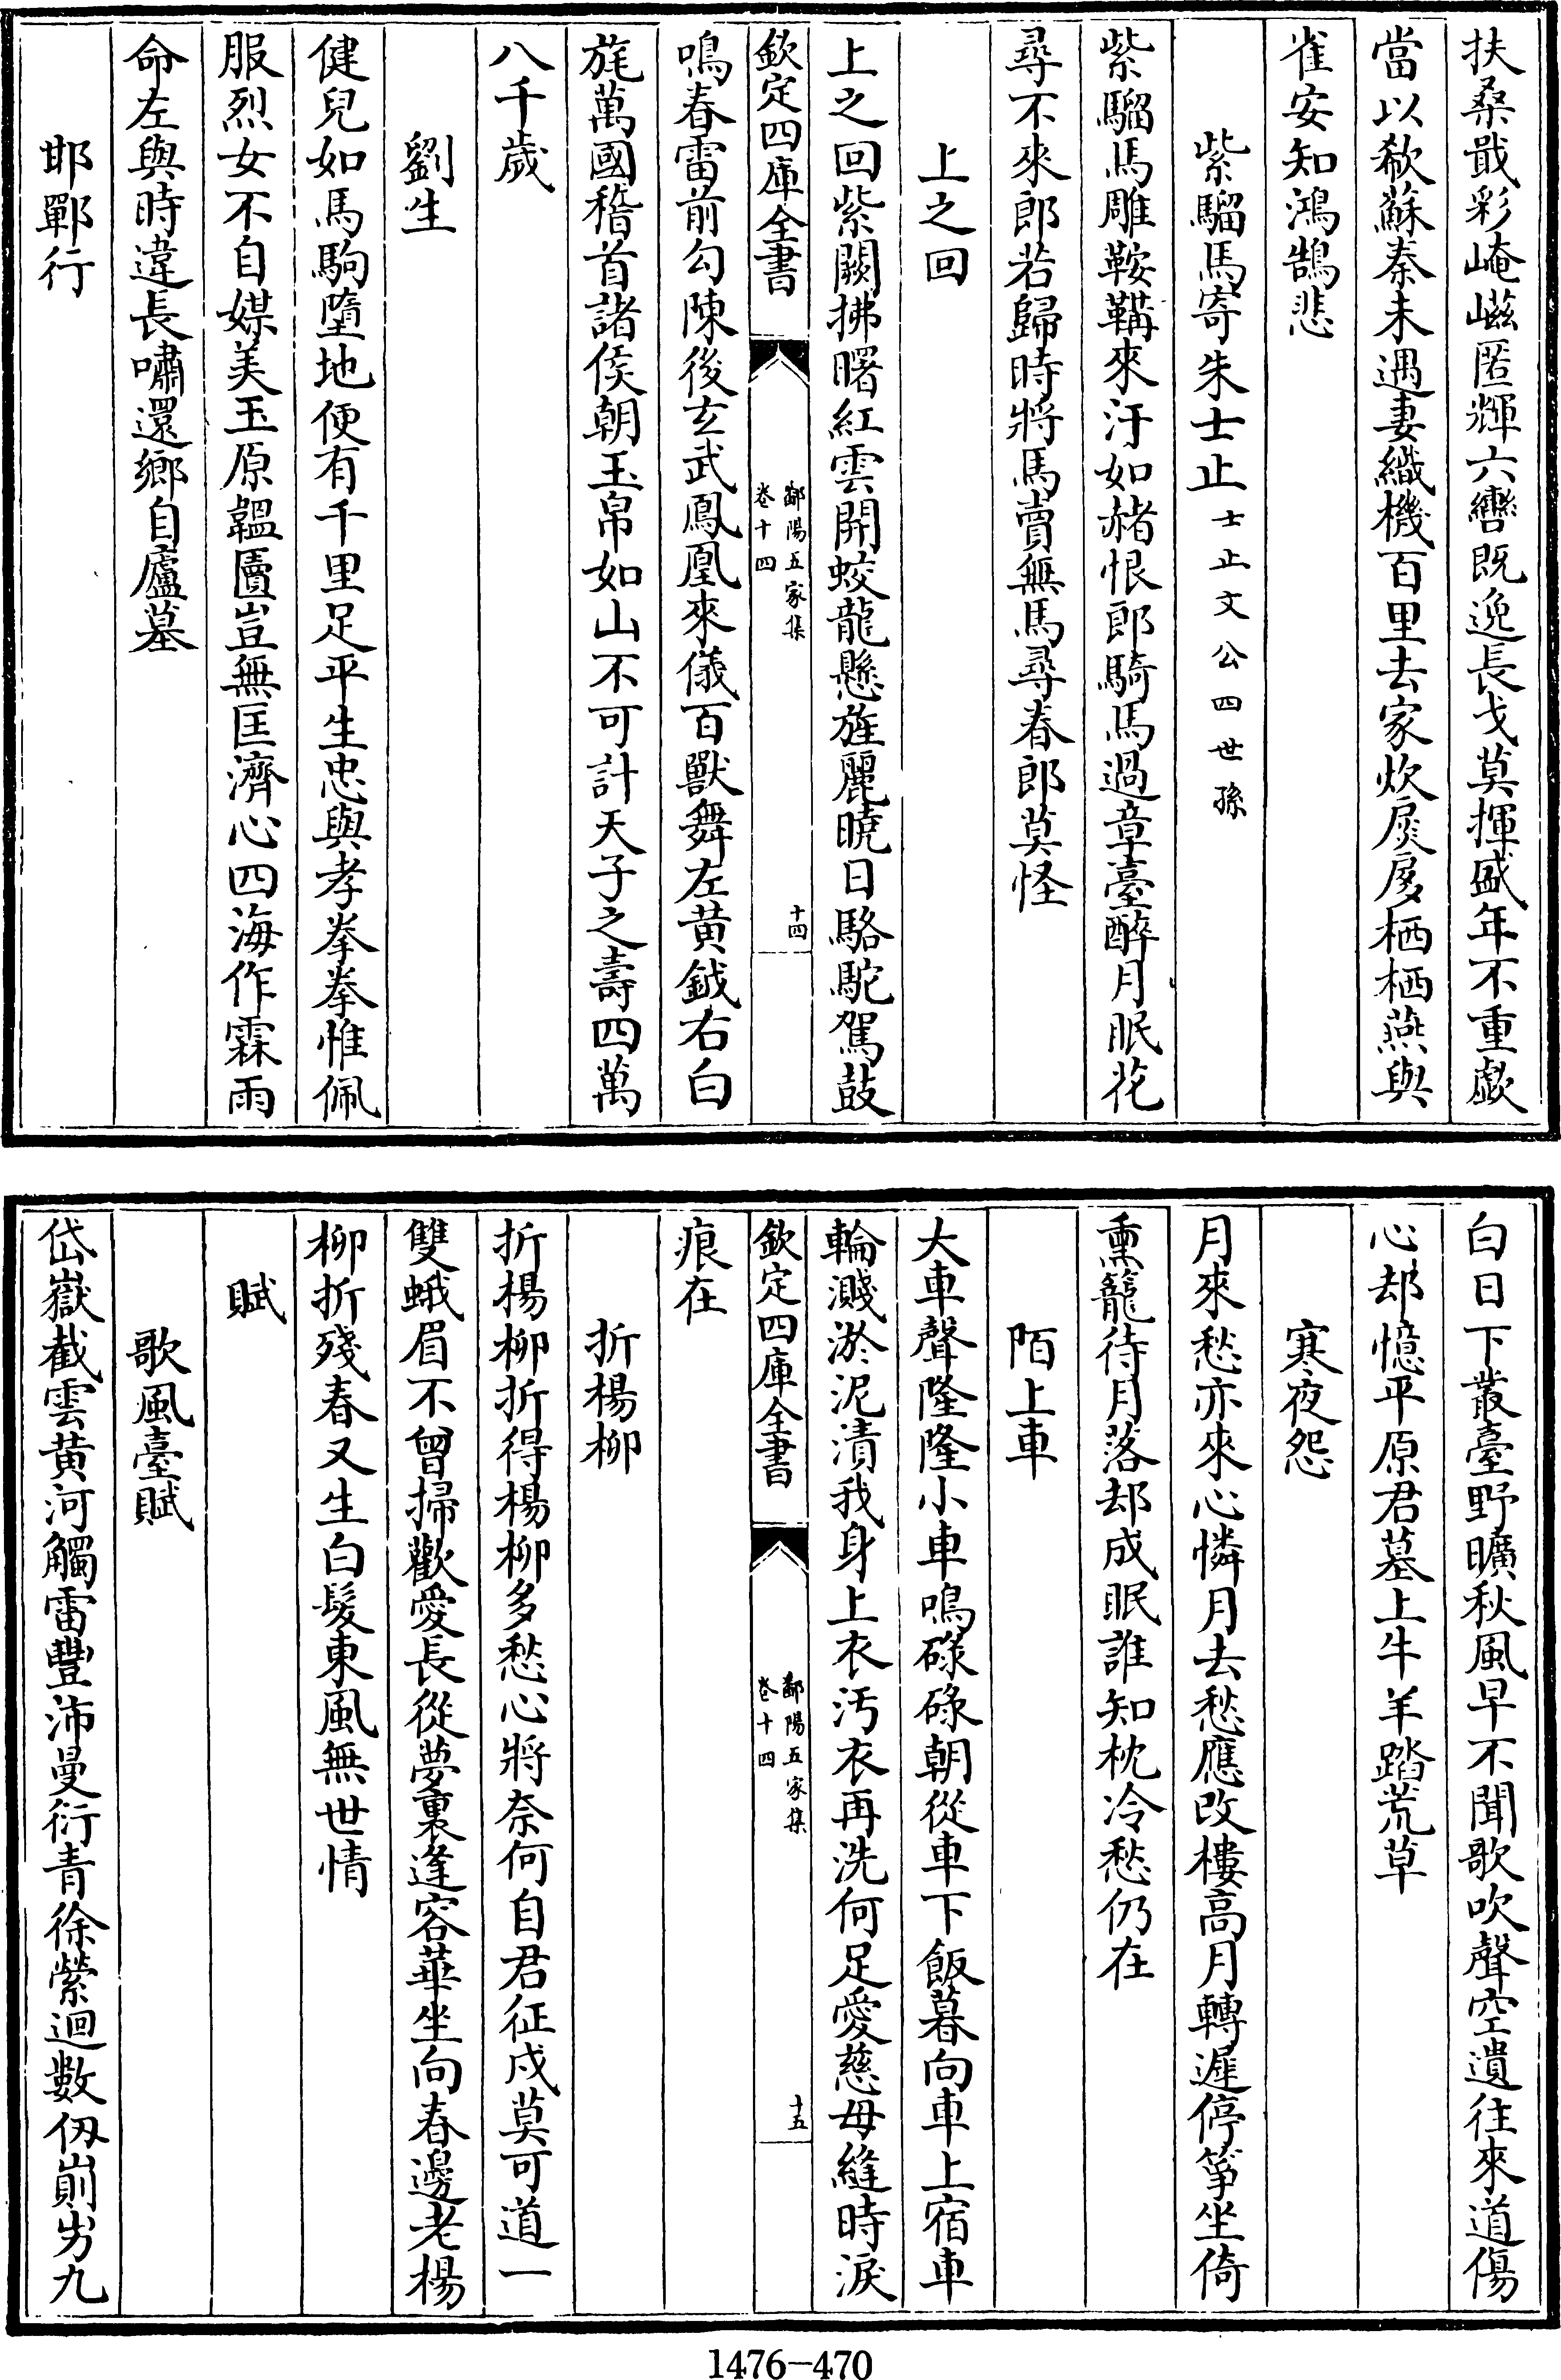 扶桑戢彩崦嵫匿輝六轡既逸長戈莫揮盛年不重歔
當以欷蘇秦未遇妻織機百里去家炊扊扅栖栖燕與
雀安知鴻鵠悲
紫騮馬寄朱士止士止文公四世孫
紫騮馬雕鞍鞲來汗如赭恨郎騎馬過章臺醉月眠花
尋不來郎若歸時將馬賣無馬尋春郎莫怪
上之回
上之回紫闕拂曙紅雲開蛟龍懸旌麗曉日駱駝駕鼓
欽定四庫全書
鄱陽五家集
卷十四
十四
鳴春雷前勾陳後玄武鳳凰來儀百獸舞左黃鉞右白
旄萬國稽首諸侯朝玉帛如山不可計天子之壽四萬
八千歲
劉生
健兒如馬駒墮地便有千里足平生忠與孝拳拳惟佩
服烈女不自媒美玉原韞匵豈無匡濟心四海作霖雨
命左與時違長嘯還鄉自廬墓
邯鄲行
白日下叢臺野曠秋風早不聞歌吹聲空遺往來道傷
心却憶平原君墓上牛羊踏荒草
寒夜怨
月來愁亦來心憐月去愁應改樓高月轉遲停箏坐倚
熏籠待月落却成眠誰知枕冷愁仍在
陌上車
大車聲隆隆小車鳴碌碌朝從車下飯暮向車上宿車
輪濺淤泥漬我身上衣汚衣再洗何足愛慈母縫時淚
欽定四庫全書
鄱陽五家集
卷十四
十五
痕在
折楊柳
折楊柳折得楊柳多愁心將奈何自君征戍莫可道一
雙蛾眉不曾掃歡愛長從夢裏逢容華坐向春邊老楊
柳折殘春又生白髮東風無世情
賦
歌風臺賦
岱嶽截雲黃河觸雷豐沛曼衍青徐縈迴數仭崱屴九
1476-470